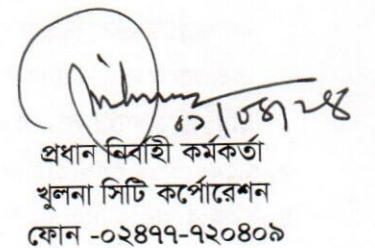 প্রধান নির্বাহী কর্মকর্তা
খুলনা সিটি কর্পোরেশন
ফোন -০২৪৭৭-৭২০৪০৯